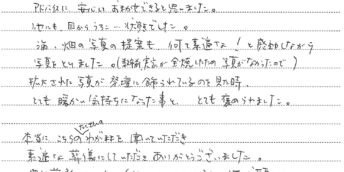 安心して おまかせできると思いました。
他にも、目からうろこ…状態でした。
海、畑の写真の提案も、何て素適な！と感動しながら
写真をとりました。(自宅が全焼したので写真がなかったので)
拡大された写真が祭壇に飾られているのを見た時、
とても暖かい気持ちになった事と、とても褒められました。
本当に、こちらのわがままをたくさん聞いていただき
素適な葬儀にしていただき ありがとうございました。